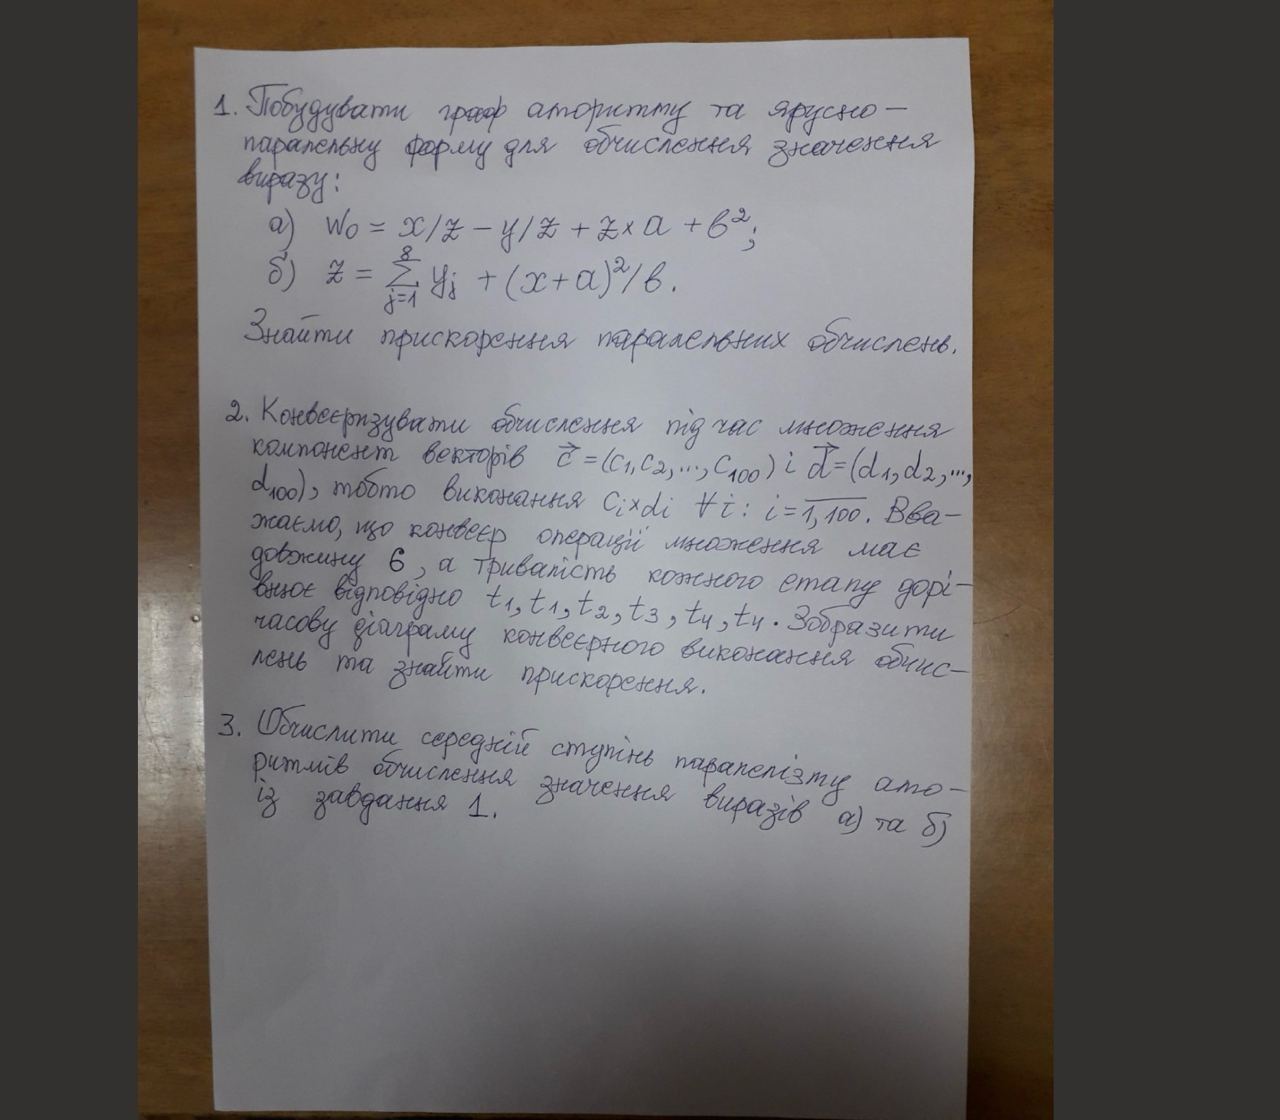 1. Побудувати граф алгоритму та ярусно-
паралельну форму для обчислення значення
виразу:
а) W₀ = x/z − y/z + z×a + b²;
б) z = ∑_{j=1}^{8} y_j + (x+a)²/b.
Знайти прискорення паралельних обчислень.
2. Конвеєризувати обчислення під час множення
компонент векторів c⃗ = (c₁, c₂, ..., c₁₀₀) і d⃗ = (d₁, d₂, ...,
d₁₀₀), тобто виконання cᵢ×dᵢ ∀i: i = 1,100. Вва-
жаємо, що конвеєр операції множення має
довжину 6, а тривалість кожного етапу дорі-
внює відповідно t₁, t₁, t₂, t₃, t₄, t₄. Зобразити
часову діаграму конвеєрного виконання обчис-
лень та знайти прискорення.
3. Обчислити середній ступінь паралелізму алго-
ритмів обчислення значення виразів а) та б)
із завдання 1.